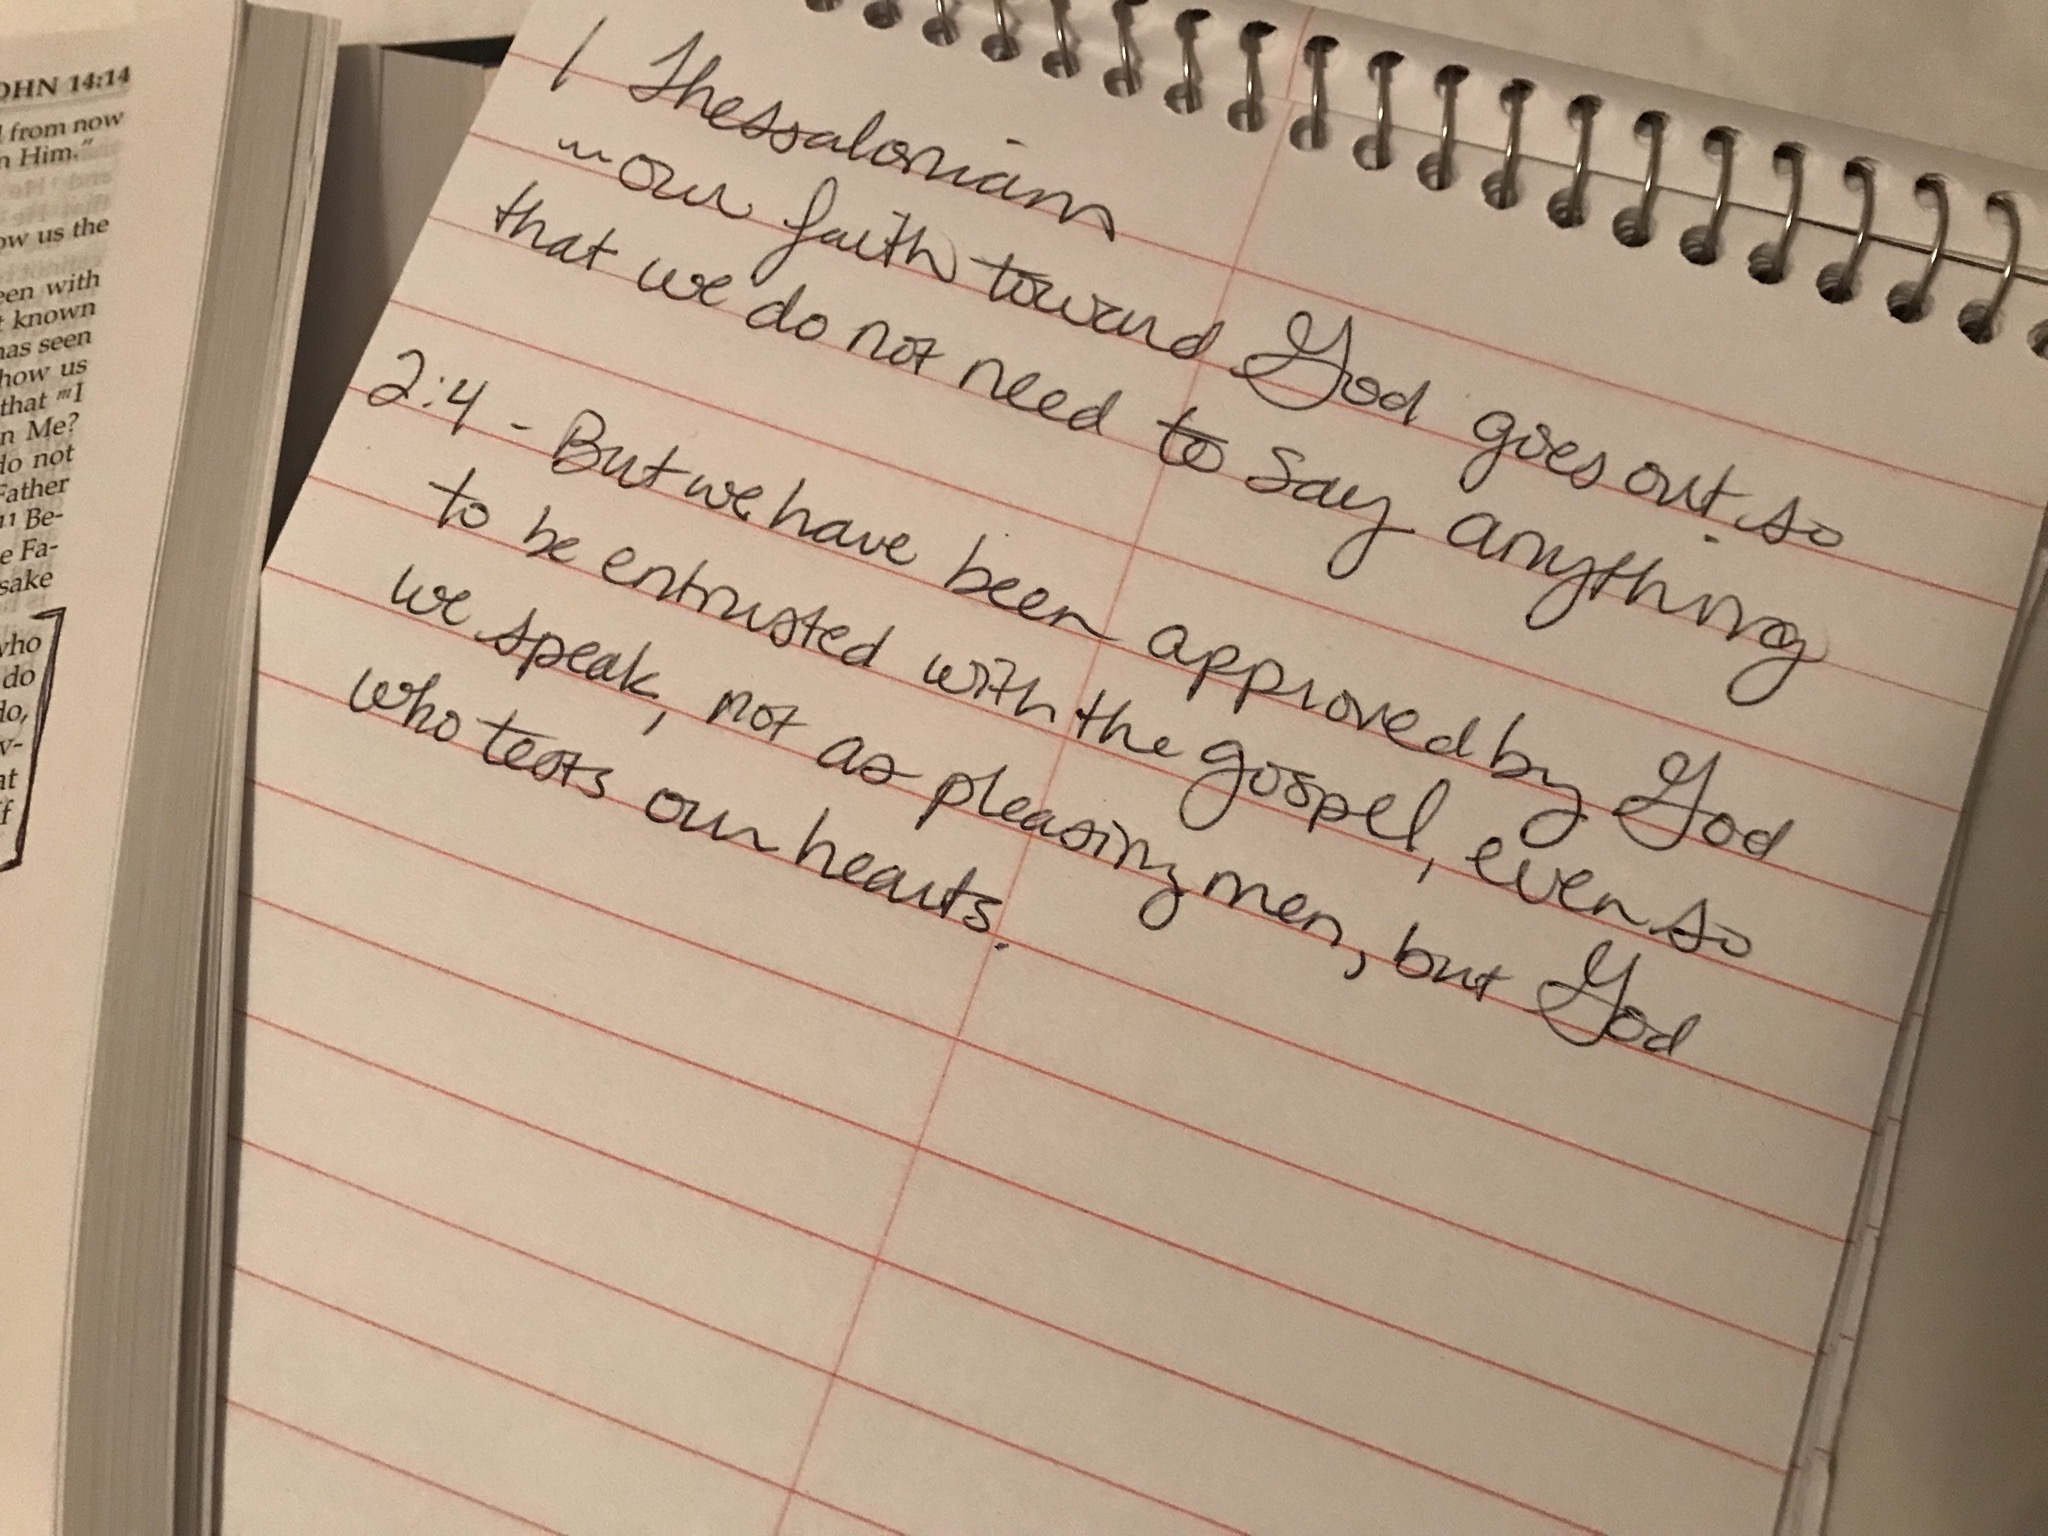 OHN 14:14
from now
n Him."
ow us the
een with
t known
has seen
how us
that ᵐI
n Me?
do not
Father
11 Be-
e Fa-
sake
who
do
do,
v-
at
f
1 Thessalonians
~our faith toward God goes out so
that we do not need to say anything
2:4 - But we have been approved by God
to be entrusted with the gospel, even so
we speak, not as pleasing men, but God
who tests our hearts.